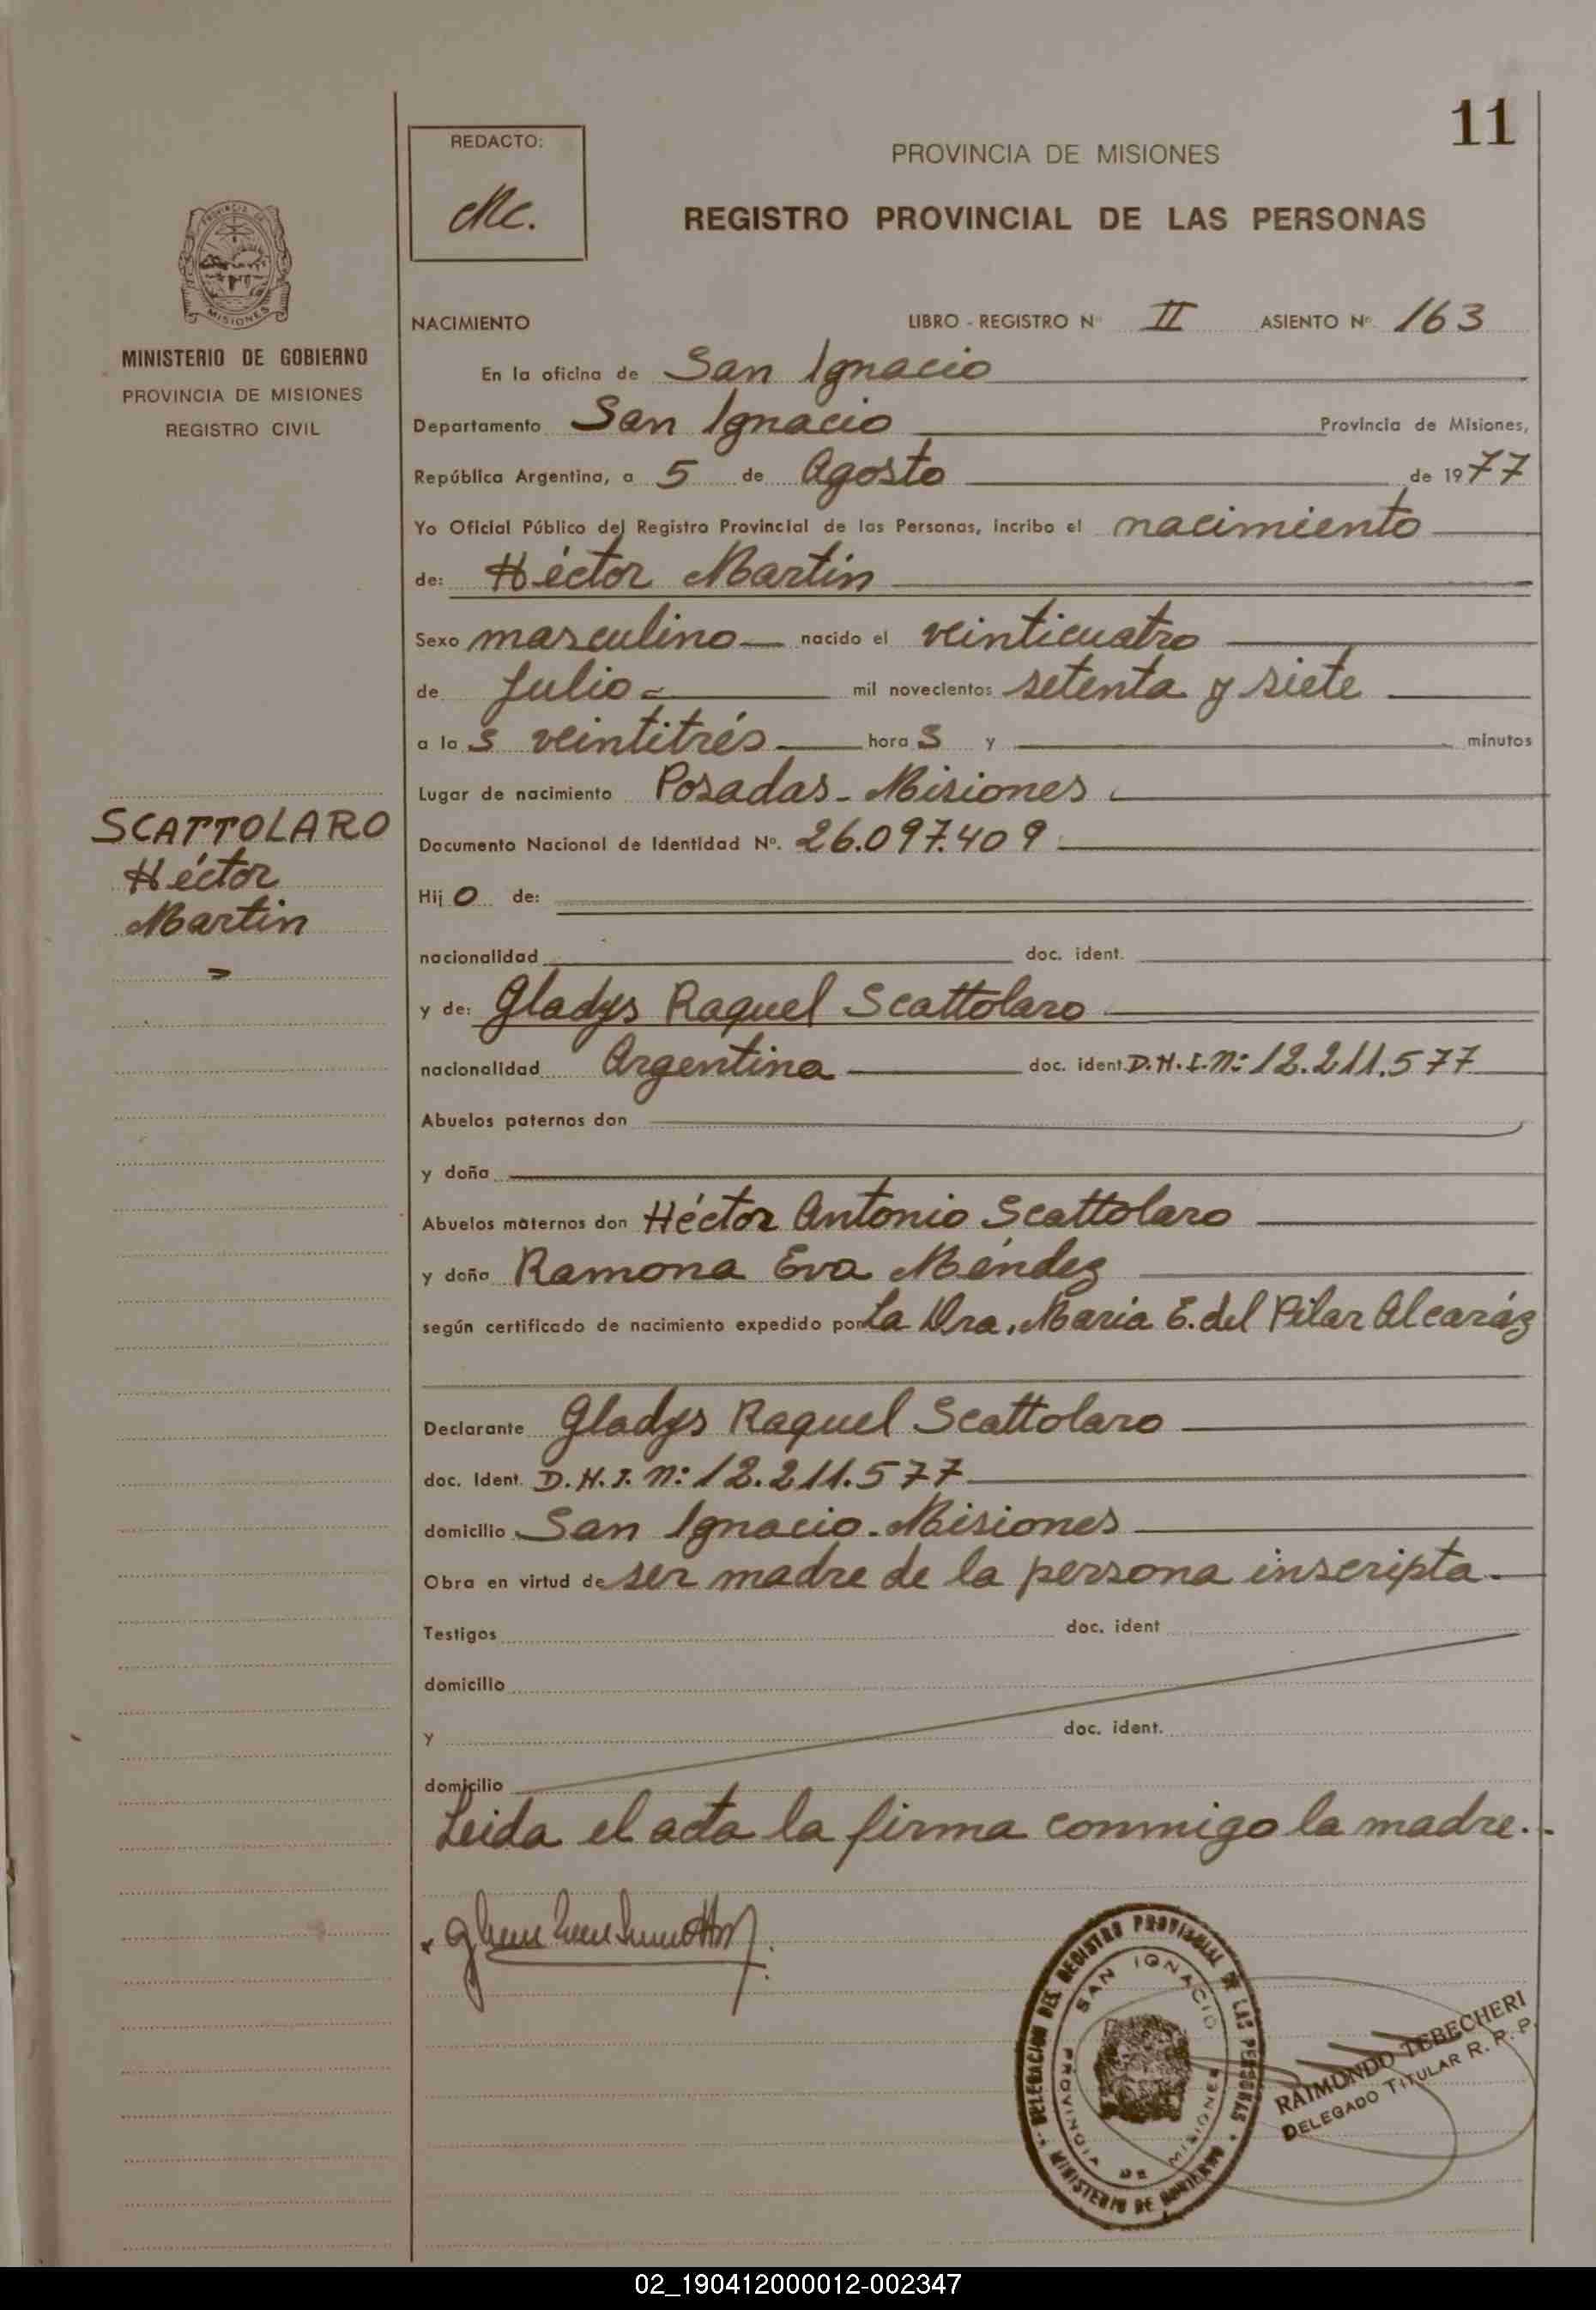 11
REDACTO:
Mc.
PROVINCIA DE MISIONES
REGISTRO PROVINCIAL DE LAS PERSONAS
MISIONES
MINISTERIO DE GOBIERNO
PROVINCIA DE MISIONES
REGISTRO CIVIL
NACIMIENTO LIBRO - REGISTRO Nº II ASIENTO Nº 163
En la oficina de San Ignacio
Departamento San Ignacio Provincia de Misiones,
República Argentina, a 5 de Agosto de 1977
Yo Oficial Público del Registro Provincial de las Personas, incribo el nacimiento
de: Héctor Martin
Sexo masculino nacido el veinticuatro
de Julio mil novecientos setenta y siete
a las veintitrés horas y minutos
Lugar de nacimiento Posadas - Misiones
Documento Nacional de Identidad Nº. 26.097.409
SCATTOLARO
Héctor
Martin
Hijo de:
nacionalidad doc. ident.
y de: Gladys Raquel Scattolaro
nacionalidad Argentina doc. ident. D.N.I. Nº: 12.211.577
Abuelos paternos don
y doña
Abuelos maternos don Héctor Antonio Scattolaro
y doña Ramona Eva Méndez
según certificado de nacimiento expedido por La Dra. Maria E. del Pilar Alcaráz
Declarante Gladys Raquel Scattolaro
doc. Ident. D.N.I. Nº: 12.211.577
domicilio San Ignacio - Misiones
Obra en virtud de ser madre de la persona inscripta.
Testigos doc. ident
domicilio
y doc. ident.
domicilio
Leida el acta la firma conmigo la madre.
DELEGACION DEL REGISTRO PROVINCIAL DE LAS PERSONAS
MINISTERIO DE GOBIERNO
SAN IGNACIO
PROVINCIA DE MISIONES
RAIMONDO TEBECHERI
DELEGADO TITULAR R. R. P.
02_190412000012-002347